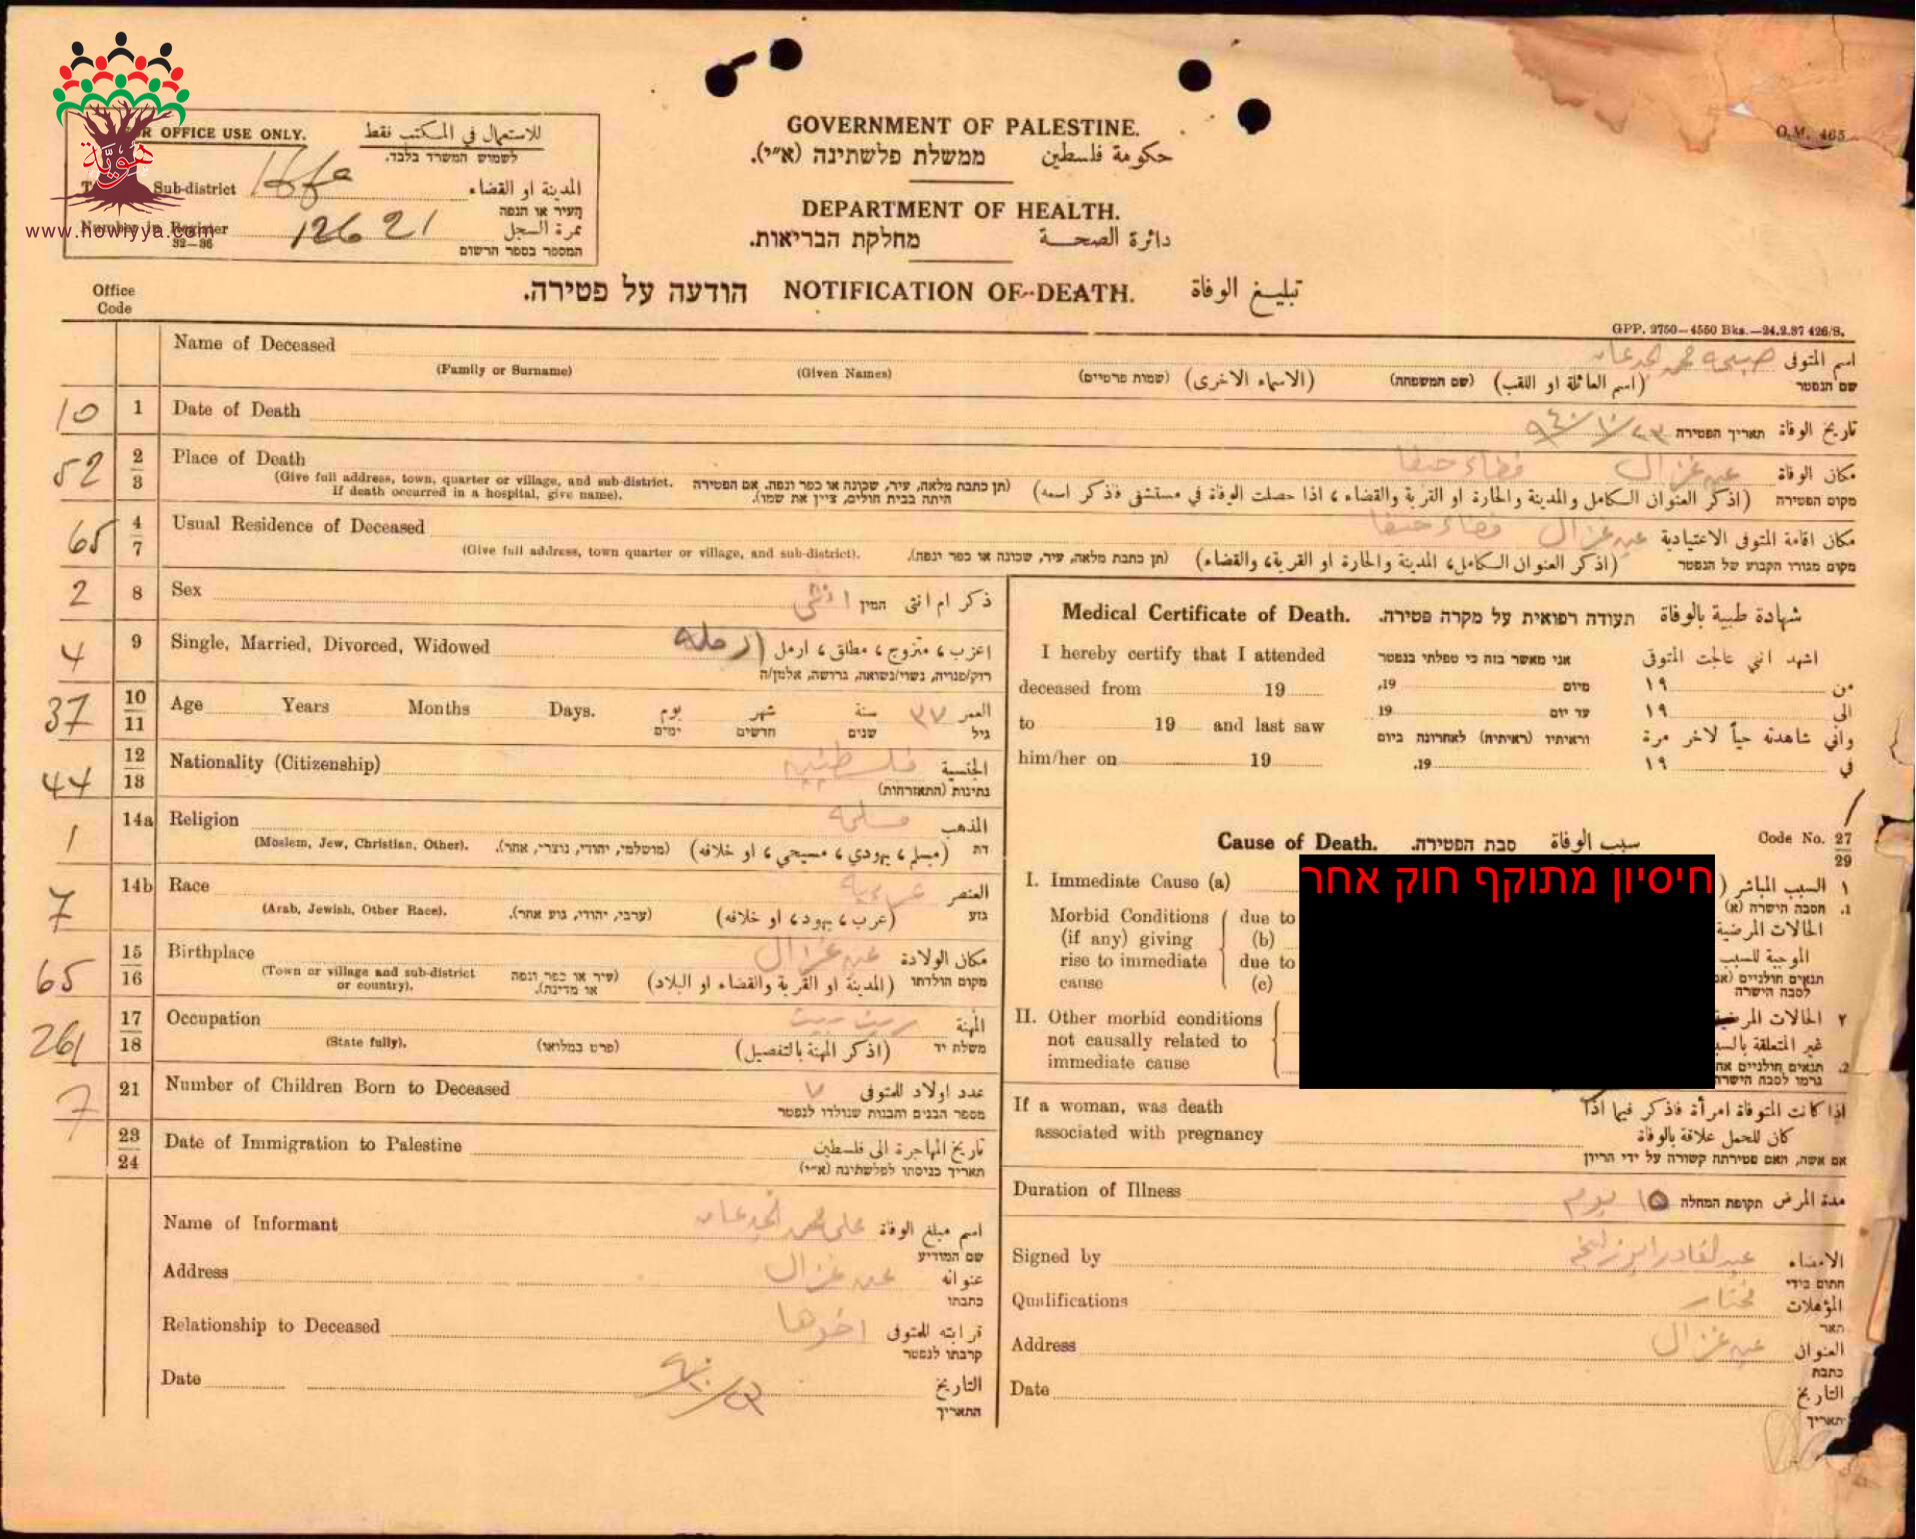 هوية
www.howiyya.com
FOR OFFICE USE ONLY. للاستعمال في المكتب فقط
לשמוש המשרד בלבד.
Sub-district المدينة او القضاء
העיר או הנפה
Number in Register 12621 نمرة السجل
32—36 המספר בספר הרשום
GOVERNMENT OF PALESTINE.
ממשלת פלשתינה (א״י). حكومة فلسطين
DEPARTMENT OF HEALTH.
מחלקת הבריאות. دائرة الصحة
O.M. 465
הודעה על פטירה. NOTIFICATION OF DEATH. تبليغ الوفاة
Office
Code
GPP. 2750—4550 Bks.—24.2.37 426/S.
Name of Deceased صبحه محمد الجدعان اسم المتوفى
(Family or Surname) (Given Names) (שמות פרטיים) (الاسماء الاخرى) (שם המשפחה) (اسم العائلة او اللقب) שם הנפטר
10 1 Date of Death ٢٣/١٠/٩٤٠ תאריך הפטירה تاريخ الوفاة
52 2 3 Place of Death عين غزال قضاء حيفا مكان الوفاة
(Give full address, town, quarter or village, and sub-district. If death occurred in a hospital, give name).
(תן כתבת מלאה, עיר, שכונה או כפר ונפה. אם הפטירה היתה בבית חולים, ציין את שמו).
(اذكر العنوان الكامل والمدينة والحارة او القرية والقضاء، اذا حصلت الوفاة في مستشفى فاذكر اسمه) מקום הפטירה
65 4 7 Usual Residence of Deceased عين غزال قضاء حيفا مكان اقامة المتوفى الاعتيادية
(Give full address, town quarter or village, and sub-district). (תן כתבת מלאה, עיר, שכונה או כפר ונפה). (اذكر العنوان الكامل، المدينة والحارة او القرية، والقضاء) מקום מגורו הקבוע של הנפטר
2 8 Sex انثى המין ذكر ام انثى
4 9 Single, Married, Divorced, Widowed ارمله اعزب، متزوج، مطلق، ارمل
רוק/פנויה, נשוי/נשואה, גרושה, אלמן/ה
37 10 11 Age Years Months Days. يوم شهر سنة ٣٧ العمر
ימים חדשים שנים גיל
44 12 13 Nationality (Citizenship) فلسطينيه الجنسية
נתינות (התאזרחות)
1 14a Religion مسلمه المذهب
(Moslem, Jew, Christian, Other). (מושלמי, יהודי, נוצרי, אחר). (مسلم، يهودي، مسيحي، او خلافه) דת
7 14b Race عربيه العنصر
(Arab, Jewish, Other Race). (ערבי, יהודי, גזע אחר). (عرب، يهود، او خلافه) גזע
65 15 16 Birthplace عين غزال مكان الولادة
(Town or village and sub-district or country). (עיר או כפר ונפה או מדינה). (المدينة او القرية والقضاء او البلاد) מקום הולדתו
261 17 18 Occupation ربت بيت المهنة
(State fully). (פרט במלואו) (اذكر المهنة بالتفصيل) משלח יד
7 21 Number of Children Born to Deceased ٧ عدد اولاد للمتوفى
מספר הבנים והבנות שנולדו לנפטר
23 24 Date of Immigration to Palestine تاريخ المهاجرة الى فلسطين
תאריך כניסתו לפלשתינה (א״י)
Name of Informant علي محمد الجدعان اسم مبلغ الوفاة
שם המודיע
Address عين غزال عنوانه
כתבתו
Relationship to Deceased اخوها قرابته للمتوفى
קרבתו לנפטר
Date التاريخ
התאריך
Medical Certificate of Death. תעודה רפואית על מקרה פטירה. شهادة طبية بالوفاة
I hereby certify that I attended אני מאשר בזה כי טפלתי בנפטר اشهد انني عالجت المتوفى
deceased from 19 מיום 19, من ١٩
to 19 and last saw עד יום 19 الى ١٩
וראיתיו (ראיתיה) לאחרונה ביום واني شاهدته حياً لآخر مرة
him/her on 19 19. في ١٩
Cause of Death. סבת הפטירה. سبب الوفاة Code No. 27 29
חיסיון מתוקף חוק אחר
I. Immediate Cause (a) السبب المباشر ١
הסבה הישרה (א) .1
Morbid Conditions due to الحالات المرضية
(if any) giving (b)
rise to immediate due to الموجبة للسبب
cause (c) תנאים חולניים
לסבה הישרה
II. Other morbid conditions الحالات المرضية ٢
not causally related to غير المتعلقة
immediate cause תנאים חולניים .2
גרמו לסבה הישרה
If a woman, was death اذا كانت المتوفاة امرأة فاذكر فيما اذا
associated with pregnancy كان للحمل علاقة بالوفاة
אם אשה, האם פטירתה קשורה על ידי הריון
Duration of Illness ١٥ يوم תקופת המחלה مدة المرض
Signed by الامضاء
חתום בידי
Qualifications مختار المؤهلات
תאר
Address عين غزال العنوان
כתבת
Date التاريخ
תאריך